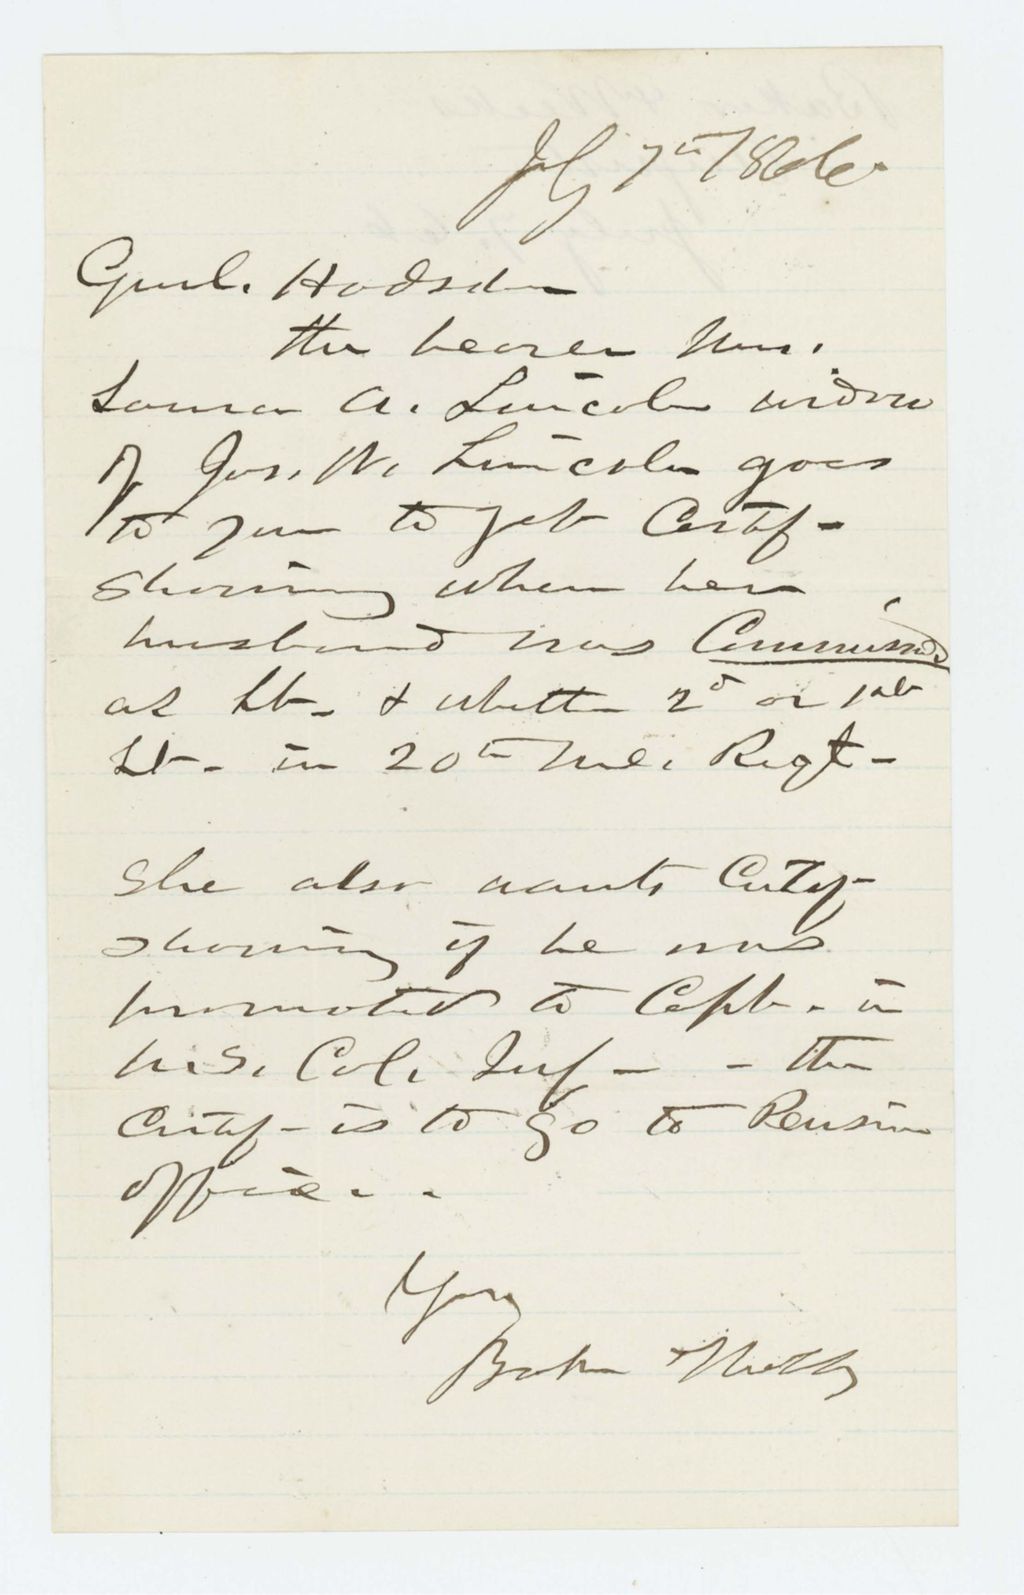 July 7th 1866.
Genl. Hodsdon
the bearer Mrs.
Louisa A. Lincoln widow
of Jos. W. Lincoln goes
to you to get Certif-
showing when her
husband was Commissnd
as Lt- & whether 2d or 1st
Lt- in 20th Me. Regt-
She also wants Certif-
showing if he was
promoted to Capt. in
U.S. Col. Inf- - the
Certif- is to go to Pension
office. .
Yours
Baker & Weeks